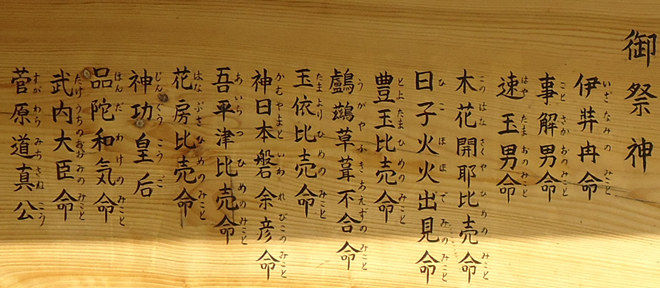 御祭神
伊弉冉命
いざなみの みこと
事解男命
ことさかおの みこと
速玉男命
はやたまおの みこと
木花開耶比売命
このはなさくやひめの みこと
日子火火出見命
ひこほほでみの みこと
豊玉比売命
とよたまひめの みこと
鸕鷀草葺不合命
うがやふきあえずの みこと
玉依比売命
たまよりひめの みこと
神日本磐余彦命
かむやまといわれびこの みこと
吾平津比売命
あいらつひめの みこと
花房比売命
はなぶさひめの みこと
神功皇后
じんぐうこうごう
品陀和気命
ほんだわけの みこと
武内大臣命
たけうちのおおおみの みこと
菅原道真公
すがわらみちざねこう